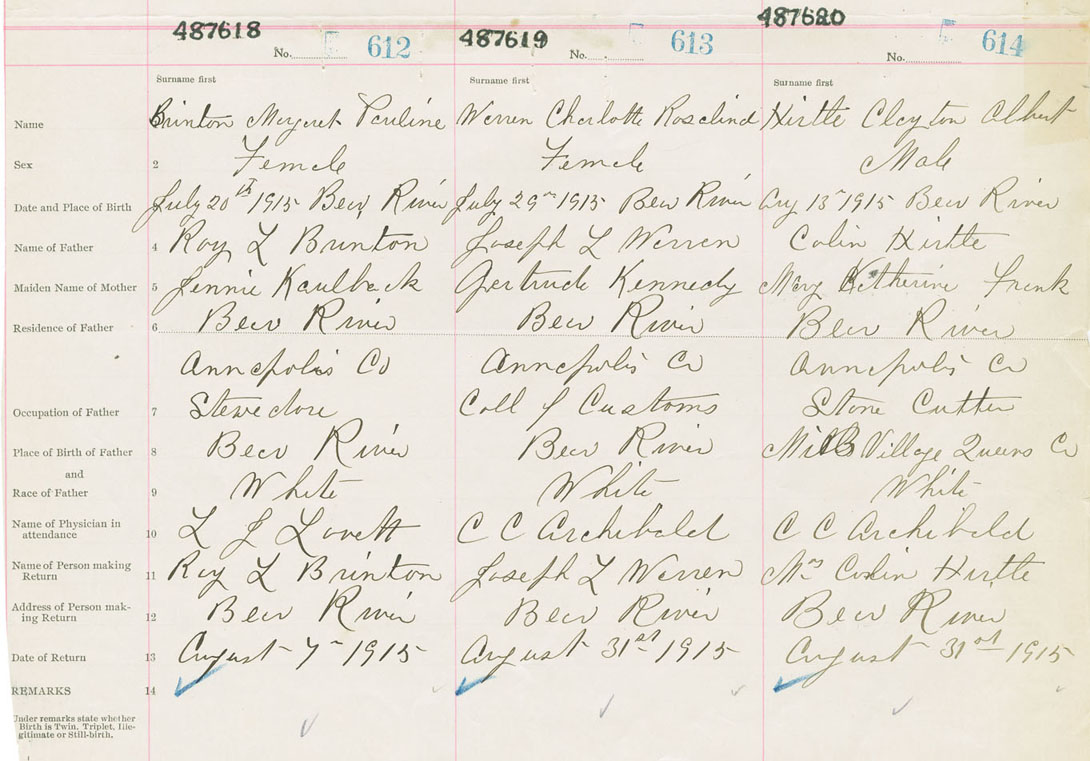 487618 487619 487620
No. 612 No. 613 No. 614
Surname first Surname first Surname first
Name Brinton Margaret Pauline Warren Charlotte Rosalind Hirtle Clayton Albert
Sex 2 Female Female Male
Date and Place of Birth July 20th 1915 Bear River July 29th 1915 Bear River Aug 13th 1915 Bear River
Name of Father 4 Roy L Brinton Joseph L Warren Colin Hirtle
Maiden Name of Mother 5 Jennie Kaulback Gertrude Kennedy Mary Katherine Frank
Residence of Father 6 Bear River Bear River Bear River
Annapolis Co Annapolis Co Annapolis Co
Occupation of Father 7 Stevedore Coll of Customs Stone Cutter
Place of Birth of Father 8 Bear River Bear River Mill Village Queens Co
and
Race of Father 9 White White White
Name of Physician in
attendance 10 L J Lovett C C Archibald C C Archibald
Name of Person making
Return 11 Roy L Brinton Joseph L Warren Mrs Colin Hirtle
Address of Person mak-
ing Return 12 Bear River Bear River Bear River
Date of Return 13 August 7th 1915 August 31st 1915 August 31st 1915
REMARKS 14
Under remarks state whether
Birth is Twin, Triplet, Ille-
gitimate or Still-birth.